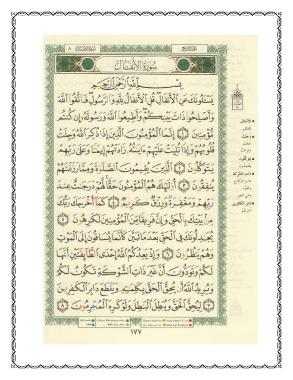 سُورَةُ الأَنفَالِ
بِسْمِ ٱللَّهِ ٱلرَّحْمَٰنِ ٱلرَّحِيمِ
يَسْـَٔلُونَكَ عَنِ ٱلْأَنفَالِ قُلِ ٱلْأَنفَالُ لِلَّهِ وَٱلرَّسُولِ فَٱتَّقُوا۟ ٱللَّهَ
وَأَصْلِحُوا۟ ذَاتَ بَيْنِكُمْ وَأَطِيعُوا۟ ٱللَّهَ وَرَسُولَهُۥٓ إِن كُنتُم
مُّؤْمِنِينَ ١ إِنَّمَا ٱلْمُؤْمِنُونَ ٱلَّذِينَ إِذَا ذُكِرَ ٱللَّهُ وَجِلَتْ
قُلُوبُهُمْ وَإِذَا تُلِيَتْ عَلَيْهِمْ ءَايَٰتُهُۥ زَادَتْهُمْ إِيمَٰنًا وَعَلَىٰ رَبِّهِمْ
يَتَوَكَّلُونَ ٢ ٱلَّذِينَ يُقِيمُونَ ٱلصَّلَوٰةَ وَمِمَّا رَزَقْنَٰهُمْ
يُنفِقُونَ ٣ أُو۟لَٰٓئِكَ هُمُ ٱلْمُؤْمِنُونَ حَقًّا لَّهُمْ دَرَجَٰتٌ عِندَ
رَبِّهِمْ وَمَغْفِرَةٌ وَرِزْقٌ كَرِيمٌ ٤ كَمَآ أَخْرَجَكَ رَبُّكَ
مِنۢ بَيْتِكَ بِٱلْحَقِّ وَإِنَّ فَرِيقًا مِّنَ ٱلْمُؤْمِنِينَ لَكَٰرِهُونَ ٥
يُجَٰدِلُونَكَ فِى ٱلْحَقِّ بَعْدَ مَا تَبَيَّنَ كَأَنَّمَا يُسَاقُونَ إِلَى ٱلْمَوْتِ
وَهُمْ يَنظُرُونَ ٦ وَإِذْ يَعِدُكُمُ ٱللَّهُ إِحْدَى ٱلطَّآئِفَتَيْنِ أَنَّهَا
لَكُمْ وَتَوَدُّونَ أَنَّ غَيْرَ ذَاتِ ٱلشَّوْكَةِ تَكُونُ لَكُمْ
وَيُرِيدُ ٱللَّهُ أَن يُحِقَّ ٱلْحَقَّ بِكَلِمَٰتِهِۦ وَيَقْطَعَ دَابِرَ ٱلْكَٰفِرِينَ
٧ لِيُحِقَّ ٱلْحَقَّ وَيُبْطِلَ ٱلْبَٰطِلَ وَلَوْ كَرِهَ ٱلْمُجْرِمُونَ ٨
١٧٧